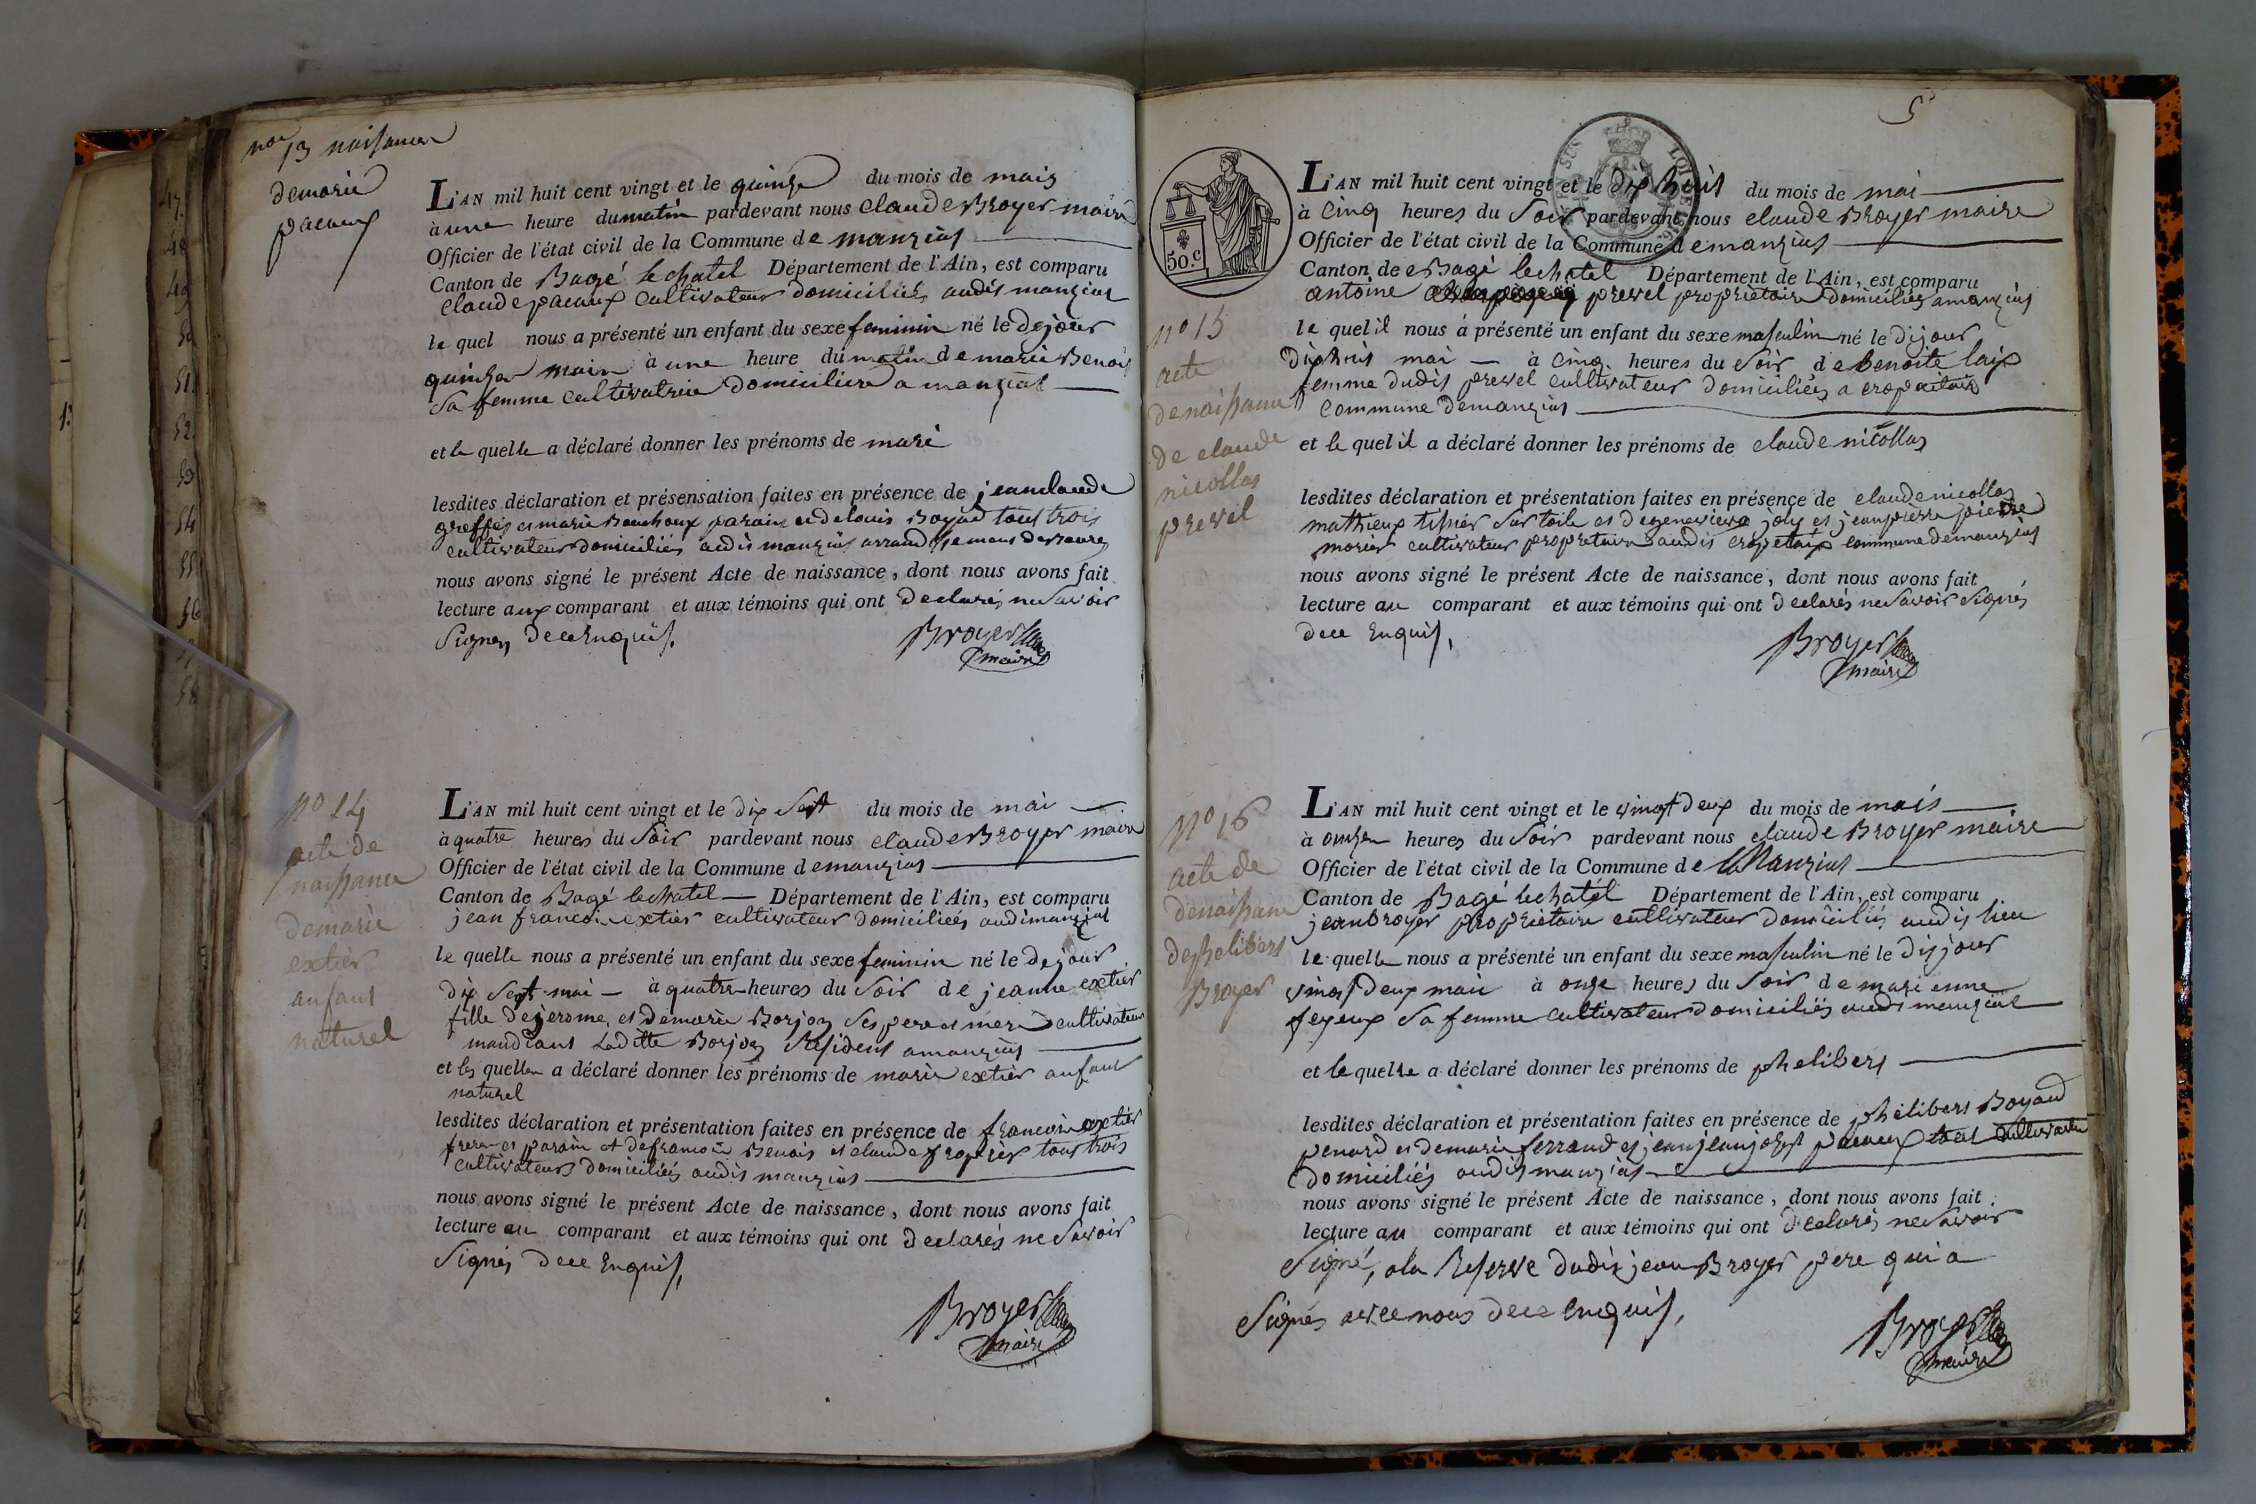 no 13 naissance
demarie
pacaux
L'AN mil huit cent vingt et le quinze du mois de mais
à une heure du matin pardevant nous claude Broyer maire
Officier de l'état civil de la Commune de manzias
Canton de Bagé lechatel Département de l'Ain, est comparu
claude pacaux cultivateur domiciliés audis manzias
le quel nous a présenté un enfant du sexe feminin né le dejour
quinze mais à une heure du matin de marie Benois
sa femme cultivatrice domiciliere a manzias
et le quelle a déclaré donner les prénoms de marie
lesdites déclaration et présensation faites en présence de jeanclaude
et marie parain et delouis Boyad tous trois
cultivateur domiciliés audis manzias
nous avons signé le présent Acte de naissance, dont nous avons fait
lecture aux comparant et aux témoins qui ont declarés ne savoir
signer dece Enquis.
Broyer
maire
no 14
acte de
naissance
demarie
extier
anfant
naturel
L'AN mil huit cent vingt et le dix sept du mois de mai
à quatre heures du soir pardevant nous claude Broyer maire
Officier de l'état civil de la Commune demanzias
Canton de Bagé lechatel Département de l'Ain, est comparu
jean francois extier cultivateur domiciliés audi manzias
le quelle nous a présenté un enfant du sexe feminin né le dejour
dix sept mai à quatre heures du soir de jeanne extier
fille dejerome et demarie Borjon ses pere et mere cultivateur
mandians laditte Borjon Residens a manzias
et les quelle a déclaré donner les prénoms de marie extier anfant
naturel
lesdites déclaration et présentation faites en présence de francois extier
frere et parain et defrancois Benois et claude tous trois
cultivateurs domiciliés audis manzias
nous avons signé le présent Acte de naissance, dont nous avons fait
lecture au comparant et aux témoins qui ont declarés ne savoir
signer dece Enquis,
Broyer
maire
5
50.c
L'AN mil huit cent vingt et le dix huit du mois de mai
à cinq heures du soir pardevant nous claude Broyer maire
Officier de l'état civil de la Commune demanzias
Canton de Bagé lechatel Département de l'Ain, est comparu
antoine prevel proprietaire domiciliés amanzias
no 15
acte
denaissance
de claude
nicollas
prevel
le quelil nous à présenté un enfant du sexe masculin né le dijour
dixhuis mai à cinq heures du soir de benoite laix
femme dudis prevel cultivateur domiciliés a
commune demanzias
et le quelil a déclaré donner les prénoms de claude nicollas
lesdites déclaration et présentation faites en présence de claude nicollas
mathieux tissier sur toile et degenevieve joly et jeanpierre
morier cultivateur propretaire audis commune demanzias
nous avons signé le présent Acte de naissance, dont nous avons fait
lecture au comparant et aux témoins qui ont declarés ne savoir signés
dece Enquis,
Broyer
maire
no 16
acte de
denaissance
dephelibers
Broyer
L'AN mil huit cent vingt et le vingt deux du mois de mais
à onzen heures du soir pardevant nous claude Broyer maire
Officier de l'état civil de la Commune de Manzias
Canton de Bagé lechatel Département de l'Ain, est comparu
jeanbroyer proprietaire cultivateur domiciliés audis lieu
le quelle nous a présenté un enfant du sexe masculin né le disjour
vingt deux mai à onze heures du soir de marienne
feyeux sa femme cultivateur domiciliés audi manziat
et le quelle a déclaré donner les prénoms de phelibers
lesdites déclaration et présentation faites en présence de phelibers Boyad
penard et demarie ferrand et jean pacaux tous cultivateur
domiciliés audis manzias
nous avons signé le présent Acte de naissance, dont nous avons fait
lecture au comparant et aux témoins qui ont declarés ne savoir
signé, ala Reserve dudis jean Broyer pere qui a
signés avec nous dece Enquis,
Broyer
maire